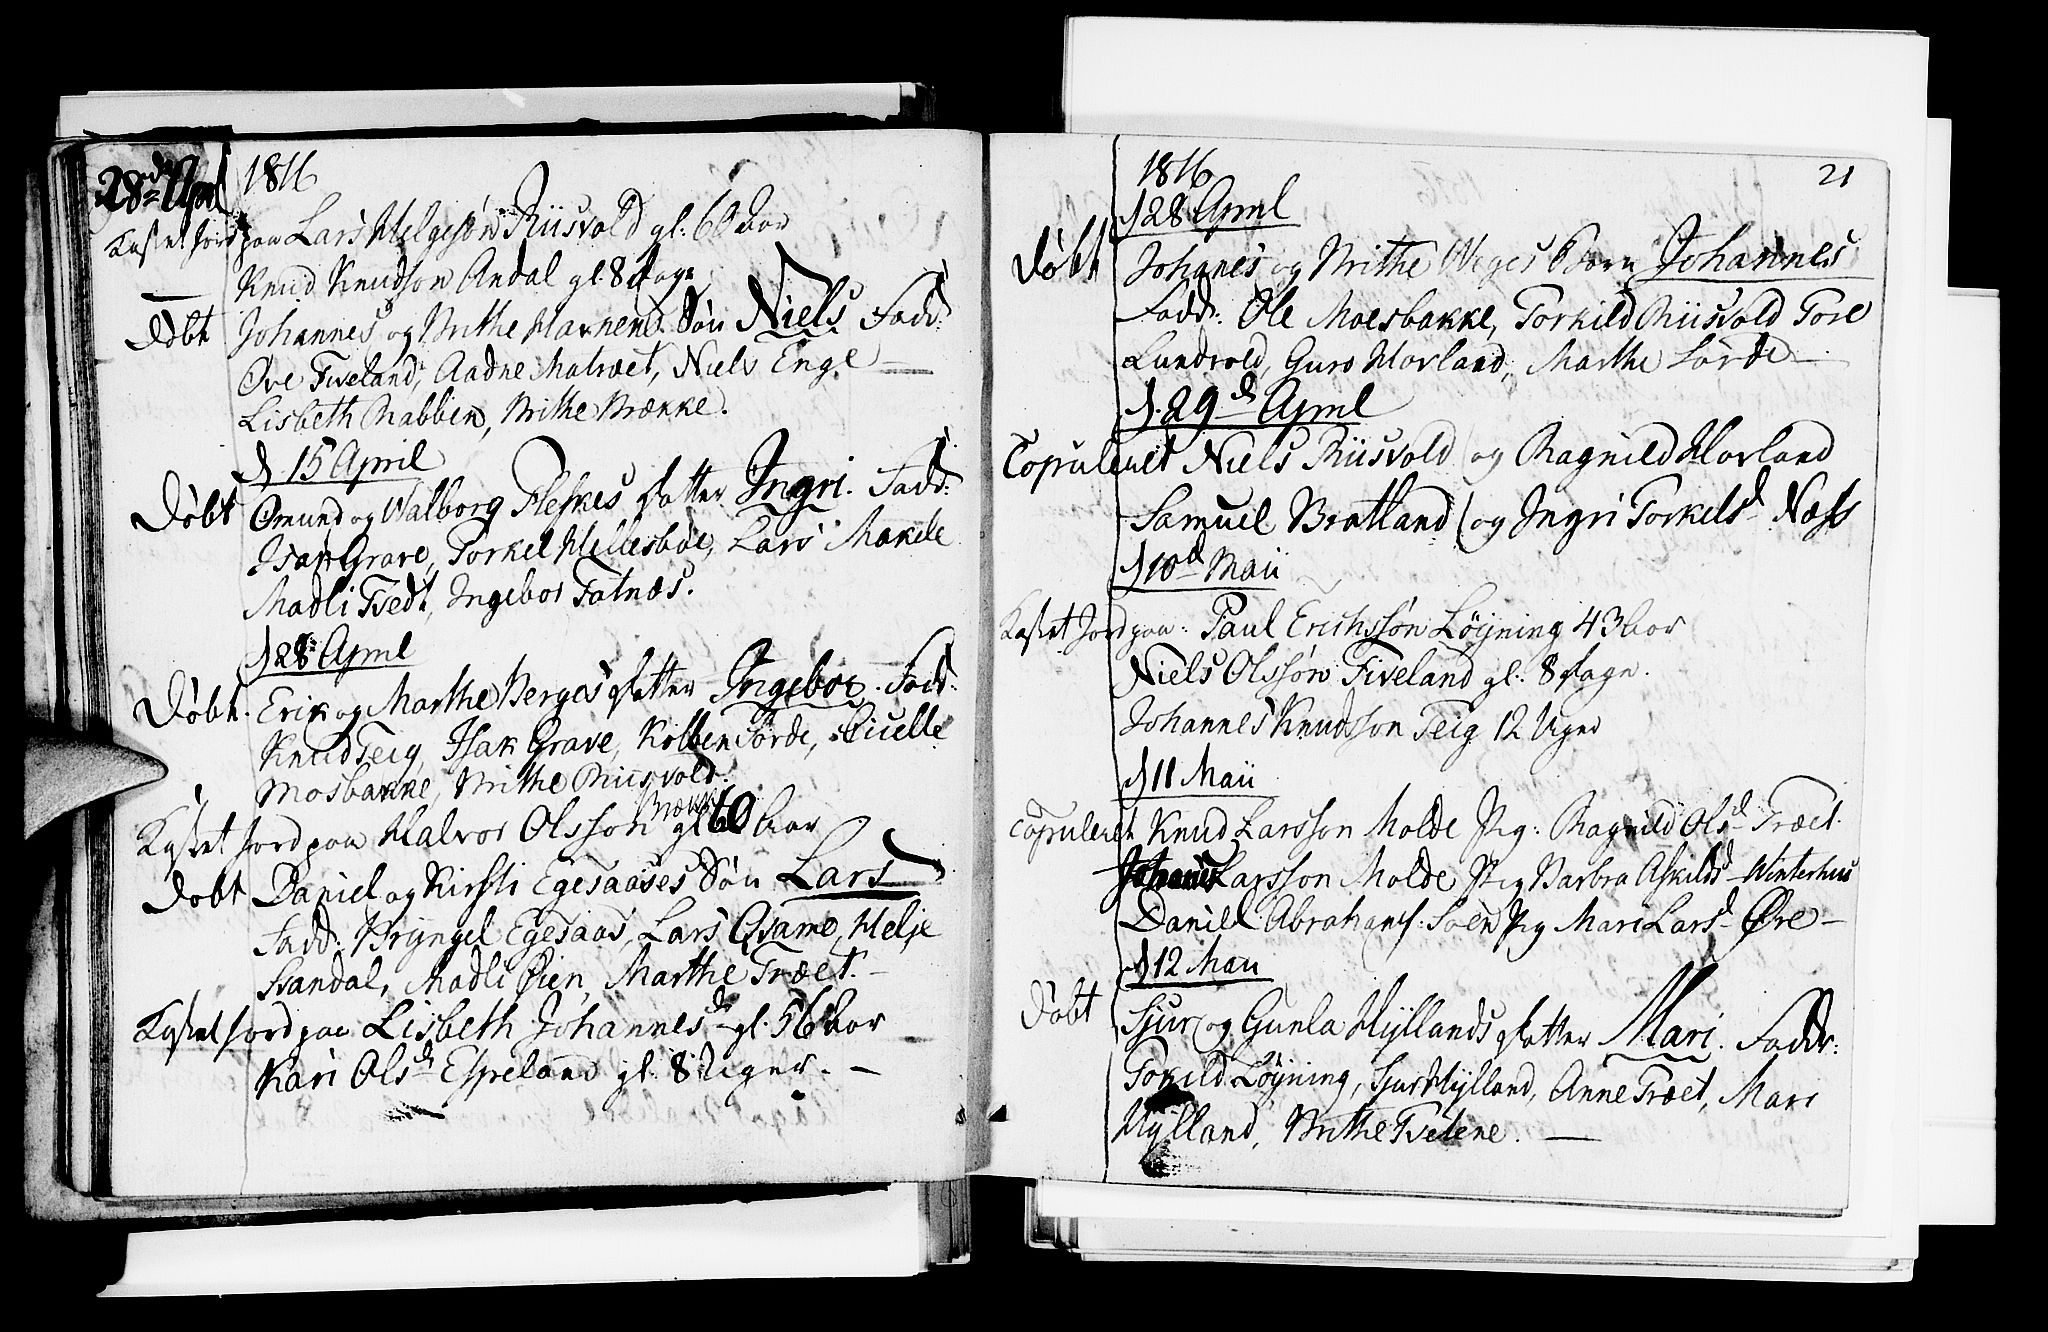 28de April 1816
Kastet Jord paa Lars Helgesøn Riisvold gl. 60 Aar
Knud Knudson Andal gl. 8 Dage
Døbt Johannes og Brithe Havnens Søn Niels Fadd:
Ove Fiveland, Aadne Matræt, Niels Enge —
Lisbeth Rabben, Brithe Brække.
d 15 April
Døbt Omund og Walborg Fleskes Datter Ingri. Fadd:
Isak Grave, Torkel Hellesbøe, Lars Makele
Madli Tvedt, Ingebor Fatnæs.
d 28: April
Døbt. Erik og Marthe Berges Datter Ingebor. Fadd:
Knud Teig, Isak Grave, Kolben Førde,
Mosbakke, Brithe Riisvold.
Brække
Kastet Jord paa Halvor Olsson gl 60 Aar
Døbt Daniel og Kirsti Egesaases Søn Lars
Fadd: Bryngel Egesaas, Lars Qvame, Helje
Sandal, Madli Øien, Marthe Træet. —
Kastet Jord paa Lisbeth Johannesd gl. 56 Aar
Kari Olsd Espeland gl. 8 Uger. —
1816 21
d 28 April
Døbt Johanes og Brithe Weges Barn Johannes
Fadd: Ole Moesbakke, Torkild Riisvold Tore
Lundvold, Guro Hovland, Marthe Førde —
d. 29d April
Copuleret Niels Riisvold og Ragnild Hovland
Samuel Bratland og Ingri Torkelsd Næss
d 10d Maii
Kastet Jord paa: Paul Erichssøn Løyning 43 Aar
Niels Olssøn Fiveland gl. 8 Dage.
Johannes Knudsson Teig 12 Uger
d 11 Maii
Copuleret Knud Larsson Molde Pig: Ragnild Olsd Træet.
Johanes Larsson Molde Pig Barbra Askildsd Winterhus
Daniel Abrahams: Soen Pig Mari Larsd Øre —
d 12 Maii
Døbt Sjur og Gunla Hyllands Datter Mari. Faddr:
Tokild Løyning, Sjur Hylland, Anne Træet, Mari
Hylland, Brithe Tveitene. —